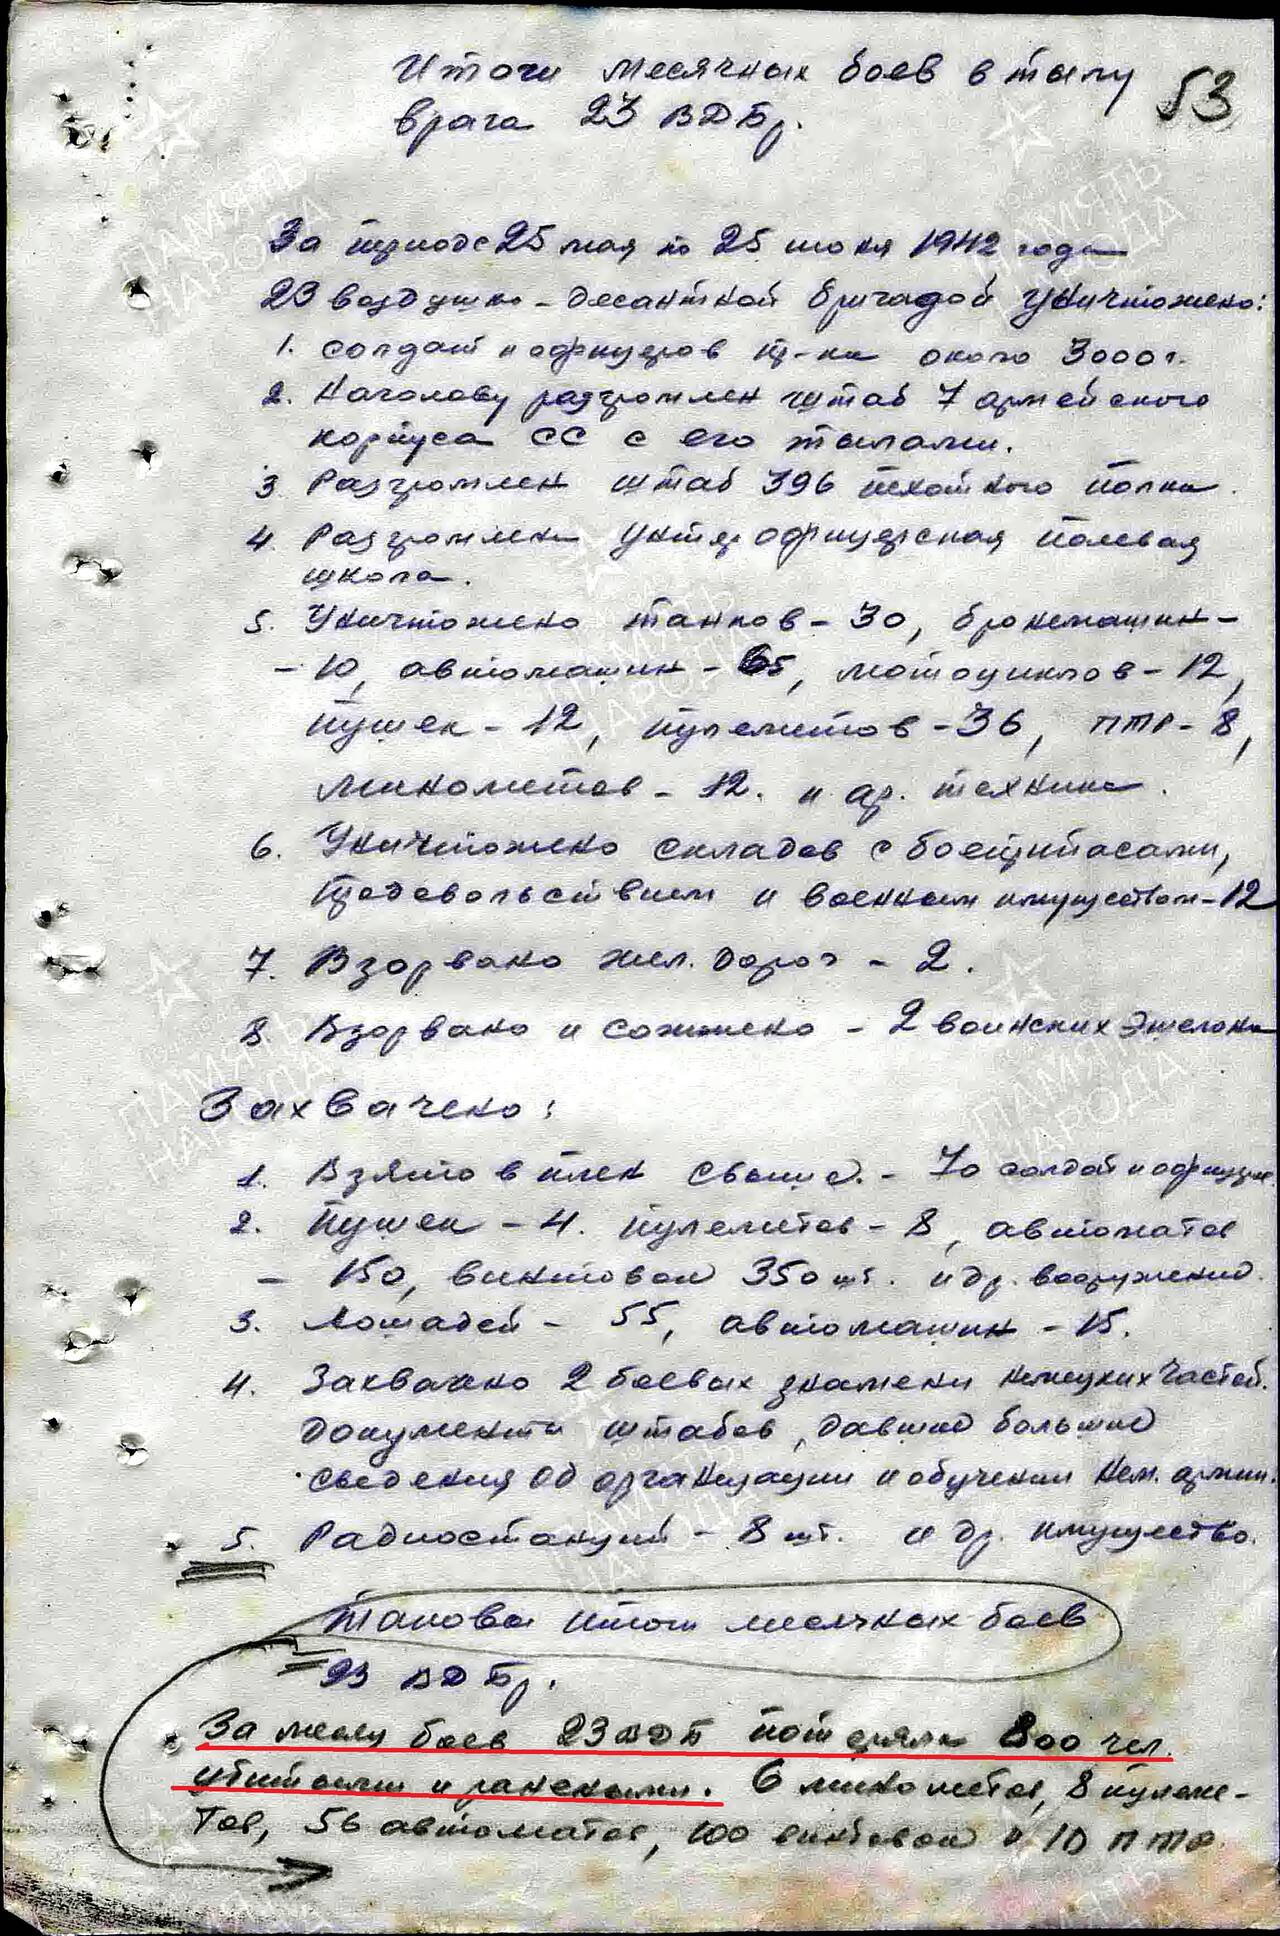 Итоги месячных боев в тылу
53
врага 23 ВДБр.
За период с 25 мая по 25 июня 1942 года
23 воздушно-десантной бригадой уничтожено:
1. Солдат и офицеров пр-ка около 3000 ч.
2. Наголову разгромлен штаб 7 армейского
корпуса СС с его тылами.
3. Разгромлен штаб 396 пехотного полка.
4. Разгромлена унтер офицерская полевая
школа.
5. Уничтожено танков - 30, бронемашин -
- 10, автомашин - 65, мотоциклов - 12,
пушек - 12, пулеметов - 36, ПТР - 8,
минометов - 12. и др. техники.
6. Уничтожено складов с боеприпасами,
продовольствием и военным имуществом - 12
7. Взорвано жел. дорог - 2.
8. Взорвано и сожжено - 2 воинских эшелона
Захвачено:
1. Взято в плен свыше - 70 солдат и офицеров
2. Пушек - 4. пулеметов - 8, автоматов
- 150, винтовок 350 шт. и др. вооружение.
3. Лошадей - 55, автомашин - 15.
4. Захвачено 2 боевых знамени немецких частей.
Документы штабов, давшие большие
сведения об организации и обучении нем. армии.
5. Радиостанций - 8 шт. и др. имущество.
Таковы итоги месячных боев
23 ВДБр.
За месяц боев 23 ВДБ потеряла 800 чел.
убитыми и ранеными. 6 минометов, 8 пулеме-
тов, 56 автоматов, 100 винтовок и 10 ПТР
ПАМЯТЬ
НАРОДА